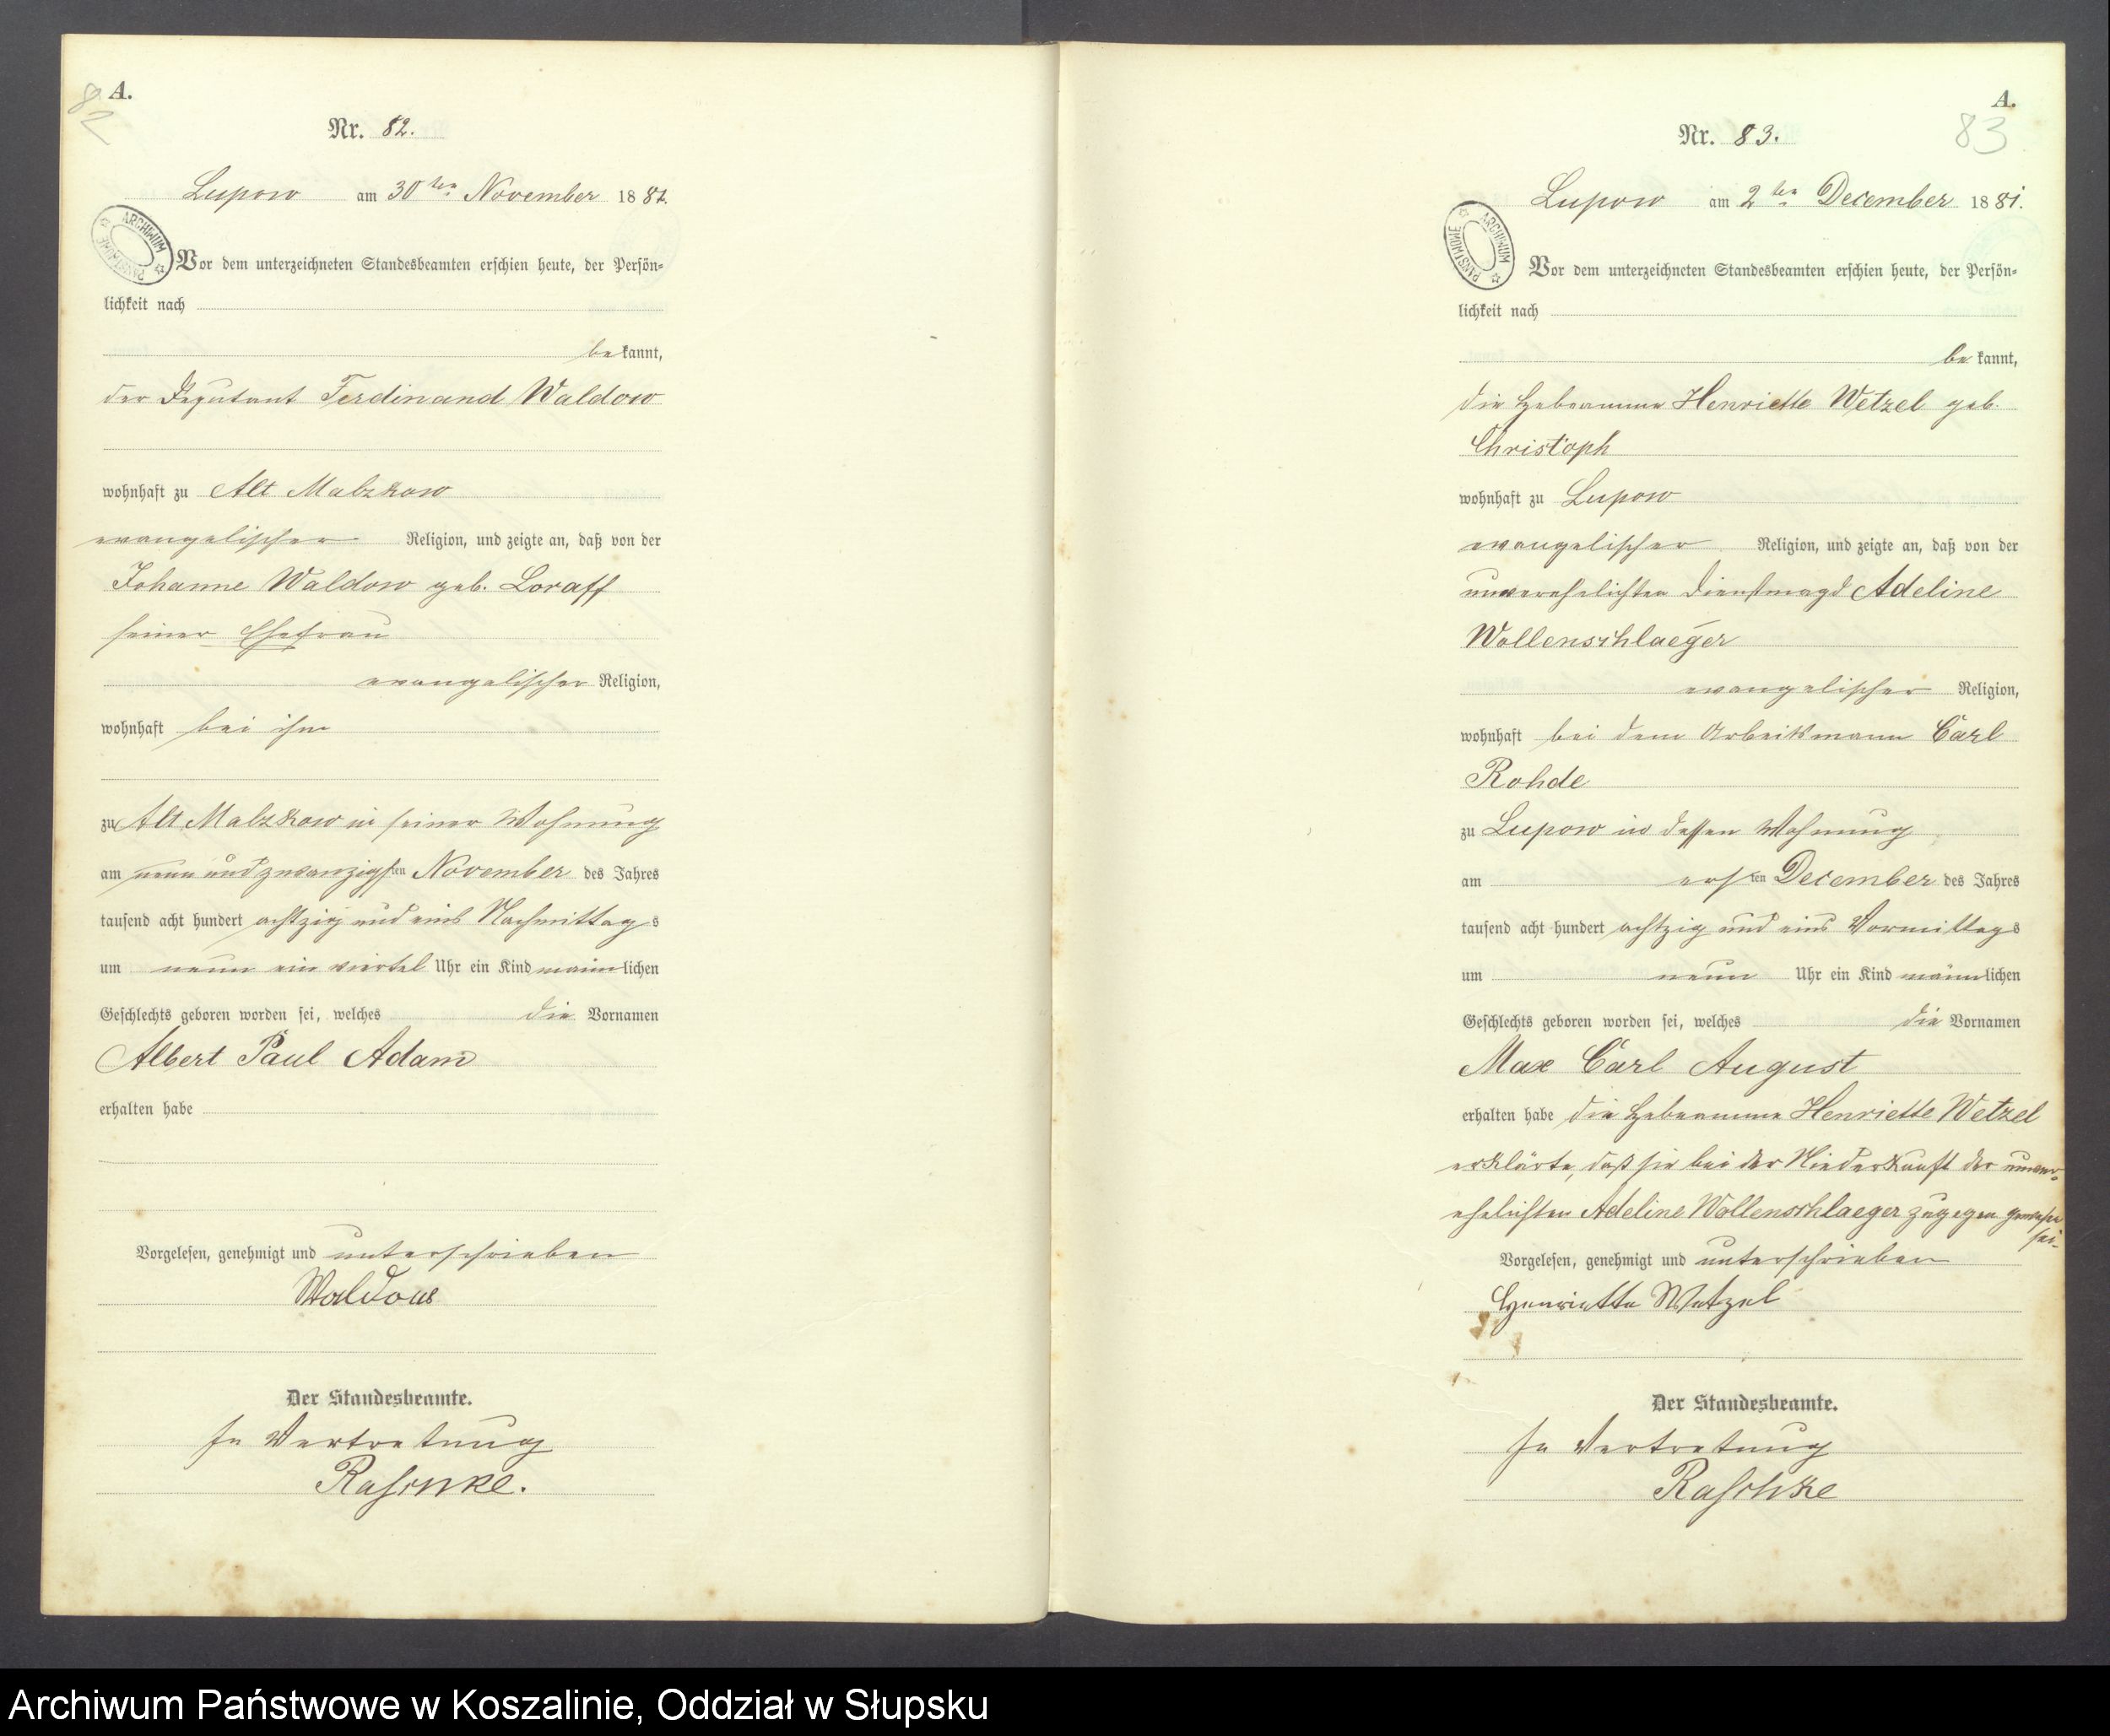 A.
82
Nr. 82.
Lupow am 30ten November 1881.
ARCHIWUM PAŃSTWOWE
Vor dem unterzeichneten Standesbeamten erschien heute, der Persön-
lichkeit nach
bekannt,
der Deputant Ferdinand Waldow
wohnhaft zu Alt Malzkow
evangelischer Religion, und zeigte an, daß von der
Johanne Waldow geb. Loraff
seiner Ehefrau
evangelischer Religion,
wohnhaft bei ihm
zu Alt Malzkow in seiner Wohnung
am neun und zwanzigsten November des Jahres
tausend acht hundert achtzig und eins Nachmittags
um neun ein viertel Uhr ein Kind männlichen
Geschlechts geboren worden sei, welches die Vornamen
Albert Paul Adam
erhalten habe
Vorgelesen, genehmigt und unterschrieben
Waldow
Der Standesbeamte.
In Vertretung
Raschke.
A.
83
Nr. 83.
Lupow am 2ten December 1881.
ARCHIWUM PAŃSTWOWE
Vor dem unterzeichneten Standesbeamten erschien heute, der Persön-
lichkeit nach
bekannt,
die Hebeamme Henriette Wetzel geb.
Christoph
wohnhaft zu Lupow
evangelischer Religion, und zeigte an, daß von der
unverehelichten Dienstmagd Adeline
Wollenschlaeger
evangelischer Religion,
wohnhaft bei dem Arbeitsmann Carl
Rohde
zu Lupow in dessen Wohnung
am ersten December des Jahres
tausend acht hundert achtzig und eins Vormittags
um neun Uhr ein Kind männlichen
Geschlechts geboren worden sei, welches die Vornamen
Max Carl August
erhalten habe die Hebeamme Henriette Wetzel
erklärte, daß sie bei der Niederkunft der unver-
ehelichten Adeline Wollenschlaeger zugegen gewesen
sei.
Vorgelesen, genehmigt und unterschrieben
Henriette Wetzel
Der Standesbeamte.
In Vertretung
Raschke
Archiwum Państwowe w Koszalinie, Oddział w Słupsku